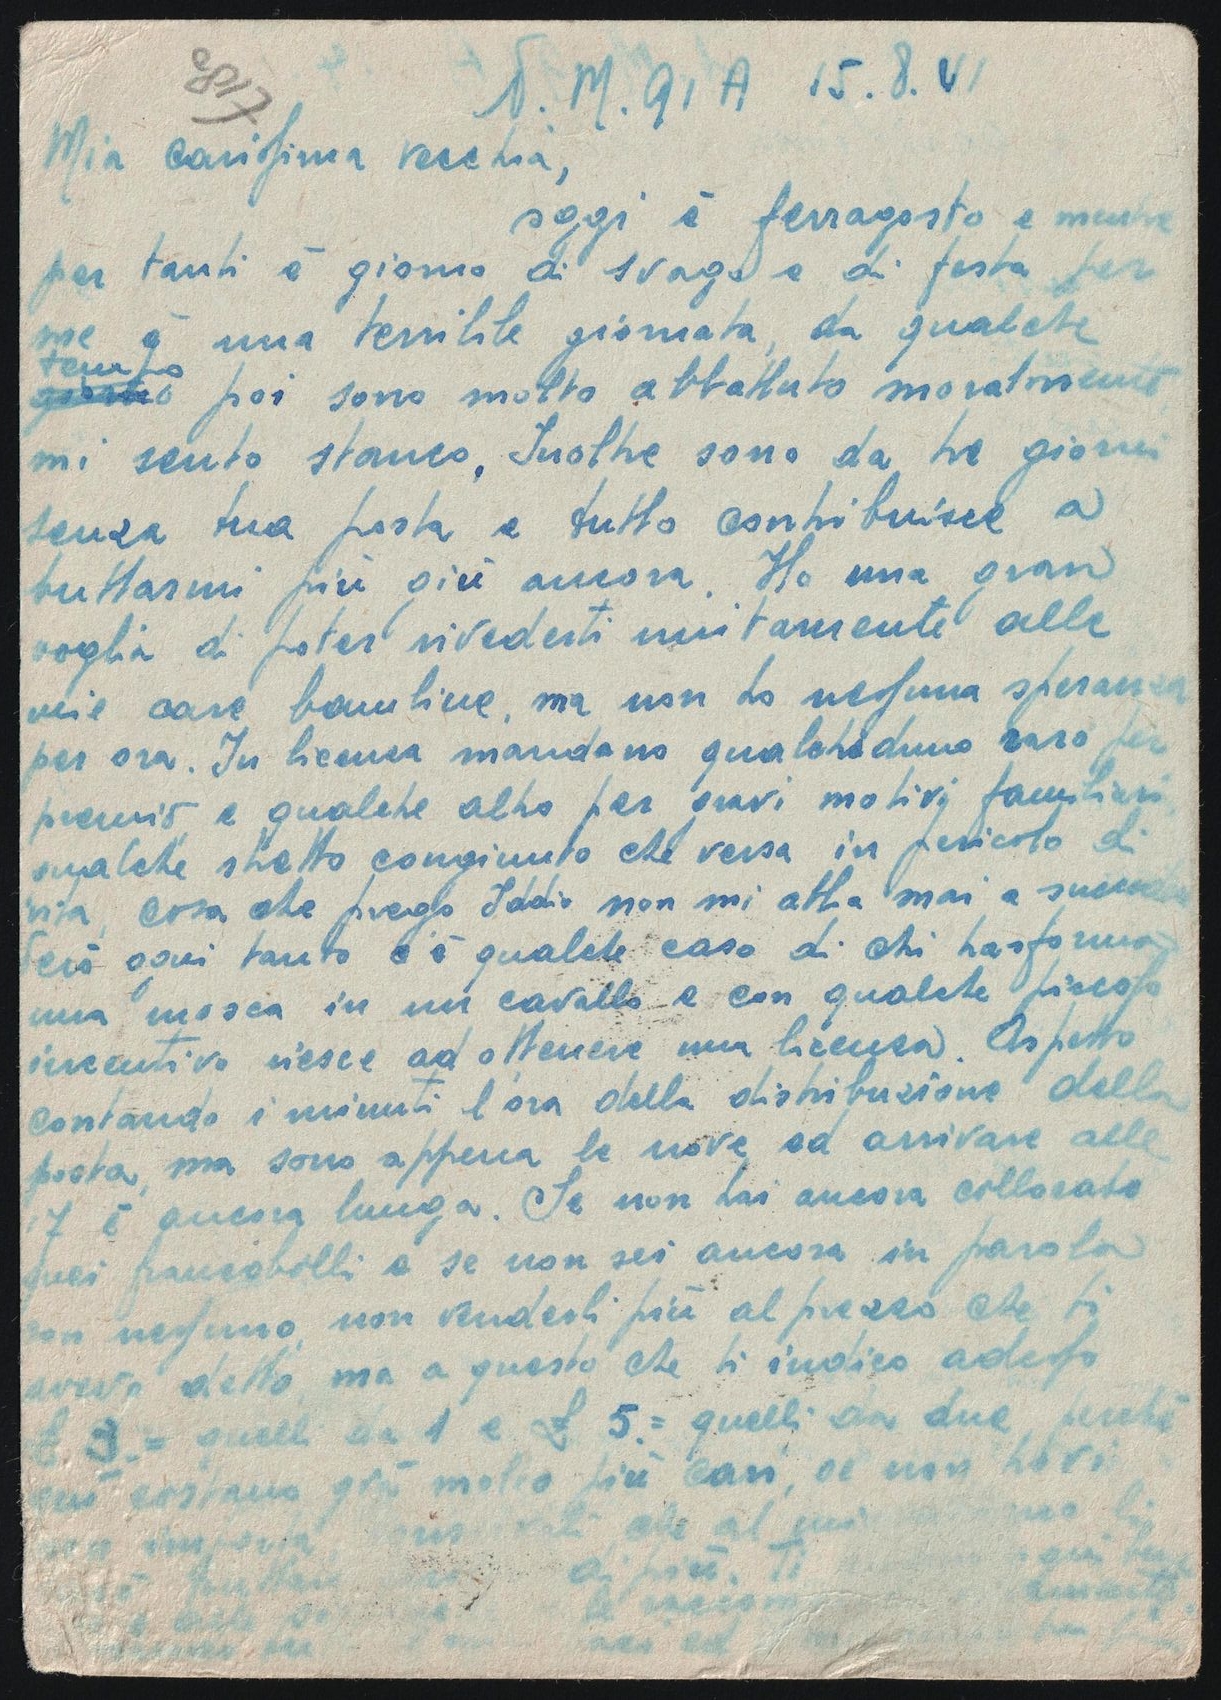 2817
N. M. 91 A 15.8.41
Mia carissima vecchia,
oggi è ferragosto e mentre
per tanti è giorno di svago e di festa per
me è una terribile giornata, da qualche
tempo
giorno poi sono molto abbattuto moralmente,
mi sento stanco. Inoltre sono da tre giorni
senza tua posta e tutto contribuisce a
buttarmi più giù ancora. Ho una gran
voglia di poter rivederti unitamente alle
mie care bambine, ma non ho nessuna speranza
per ora. In licenza mandano qualcheduno raro per
premio, e qualche altro per gravi motivi familiari,
qualche stretto congiunto che versa in pericolo di
vita, cosa che prego Iddio non mi abbia mai a succedere
Però ogni tanto c'è qualche caso di chi trasforma
una mosca in un cavallo e con qualche piccolo
incentivo riesce ad ottenere una licenza. Aspetto
contando i minuti l'ora della distribuzione della
posta, ma sono appena le nove ed arrivare alle
17 è ancora lunga. Se non hai ancora collocato
quei francobolli e se non sei ancora in parola
con nessuno, non venderli più al prezzo che ti
avevo detto, ma a questo che ti indico adesso
£ 3.= quelli da 1 e £ 5.= quelli da due, perchè
qui costano già molto più cari, se non trovi
non importa che al mio li
di più. Ti
le
ed